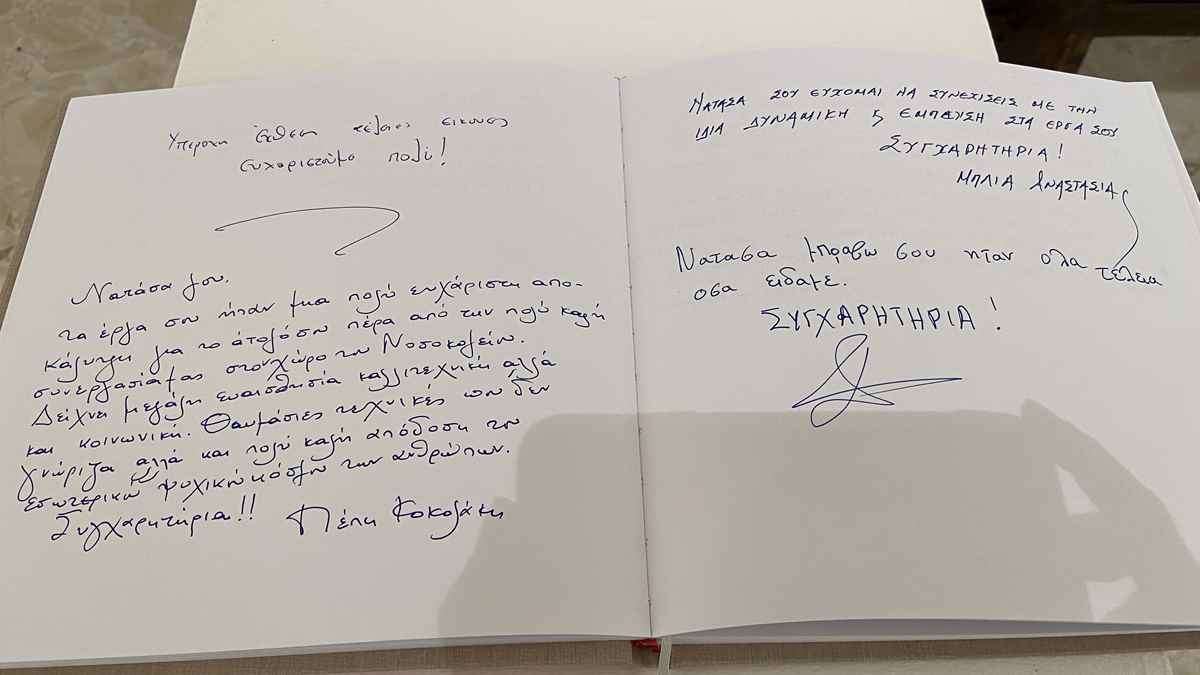 Υπεροχη έκθεση τέλειες εικονες
ευχαριστούμε πολύ!
Νατάσα μου,
τα έργα σου ήταν μια πολύ ευχάριστη απο-
κάλυψη για το άτομό σου πέρα από την πολύ καλή
συνεργασία μας στον χώρο του Νοσοκομείου.
Δείχνει μεγάλη ευαισθησία καλλιτεχνική αλλά
και κοινωνική. Θαυμάσιες τεχνικές που δεν
γνώριζα αλλά και πολύ καλή απόδοση του
εσωτερικού ψυχικού κόσμου των ανθρώπων.
Συγχαρητήρια!! Πέπη
ΝΑΤΑΣΑ ΣΟΥ ΕΥΧΟΜΑΙ ΝΑ ΣΥΝΕΧΙΣΕΙΣ ΜΕ ΤΗΝ
ΙΔΙΑ ΔΥΝΑΜΙΚΗ ς ΕΜΠΝΥΣΗ ΣΤΑ ΕΡΓΑ ΣΟΥ
ΣΥΓΧΑΡΗΤΗΡΙΑ!
ΜΠΛΙΑ ΑΝΑΣΤΑΣΙΑ
Νατασα μπραβω σου ηταν ολα τέλεια
οσα ειδαμε.
ΣΥΓΧΑΡΗΤΗΡΙΑ!